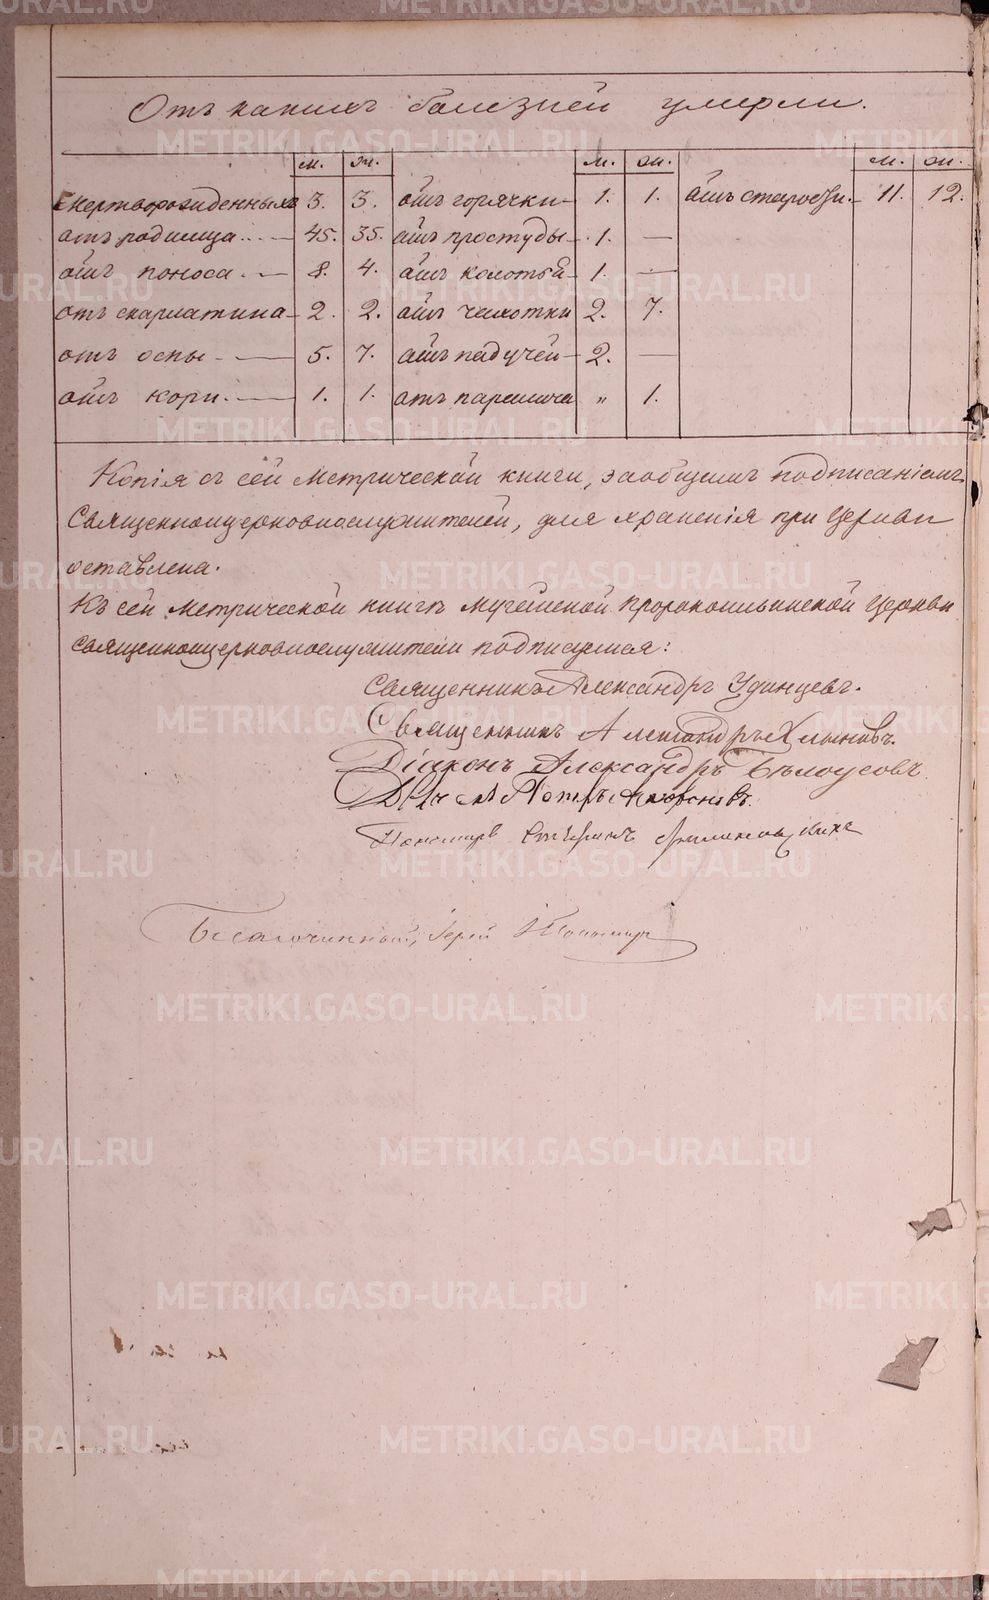 Отъ какихъ болезней умерли.
м. ж. м. ж. м. ж.
Мертворожденныхъ 3. 3. отъ горячки 1. 1. отъ старости. 11. 12.
отъ родимца 45. 35. отъ простуды 1. —
отъ поноса 8. 4. отъ колотья 1. —
отъ скарлатина 2. 2. отъ чахотки 2. 7.
отъ оспы 5. 7. отъ падучей 2. —
отъ кори. 1. 1. отъ паралича „ 1.
Копія съ сей Метрической книги, за общимъ подписаніемъ
Священноцерковнослужителей, для храненія при Церкви
оставлена.
Къ сей Метрической книгѣ Пророкоильинской Церкви
священноцерковнослужители подписуемся:
Священникъ Александръ Удинцевъ.
Священникъ Александръ Хлыновъ.
Діаконъ Александръ Бѣлоусовъ.
Петръ
Пономарь
Благочинный, Іерей
METRIKI.GASO-URAL.RU